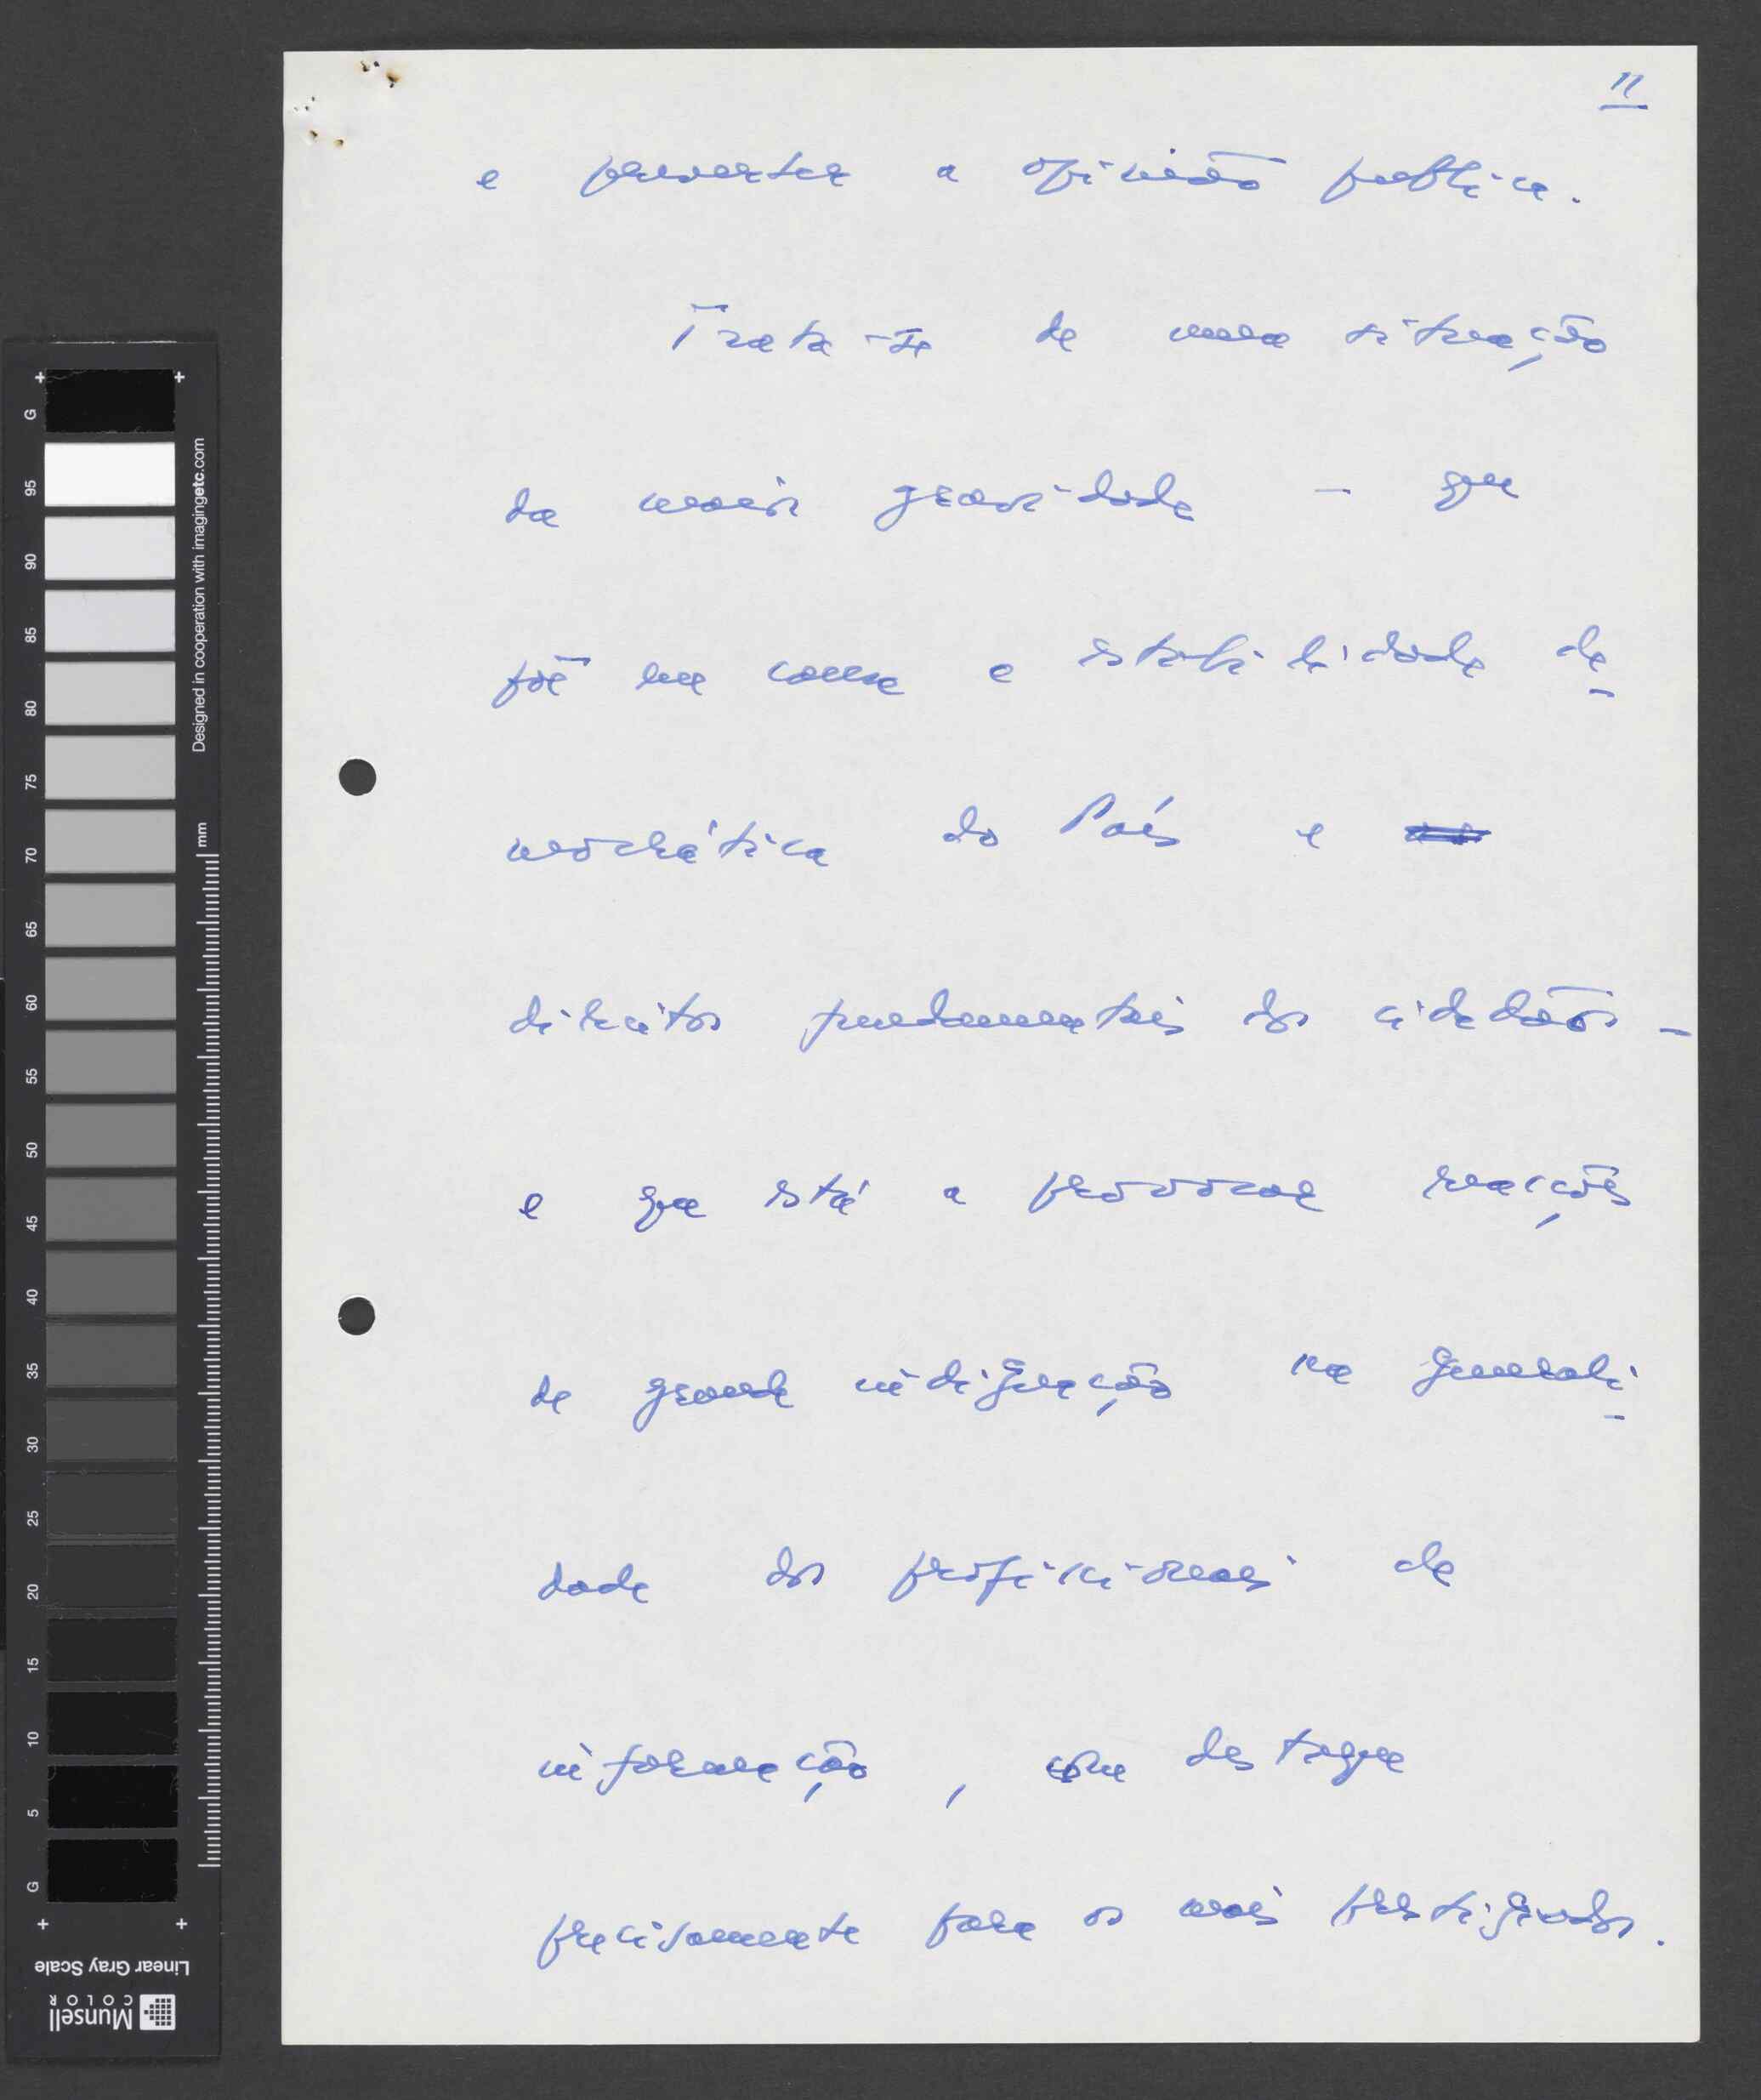 11
e perverter a opinião publica.
Trata-se de uma situação
da maior gravidade – que
põe em causa a estabilidade de-
mocrática do País e
direitos fundamentais dos cidadãos –
e que está a provocar reacções
de grande indignação na generali-
dade dos profissionais de
informação, com destaque
precisamente para os mais prestigiados.
G
95
90
85
80
75
70
65
60
55
50
45
40
35
30
25
20
15
10
5
G
Designed in cooperation with imagingetc.com
mm
Linear Gray Scale
Munsell
COLOR